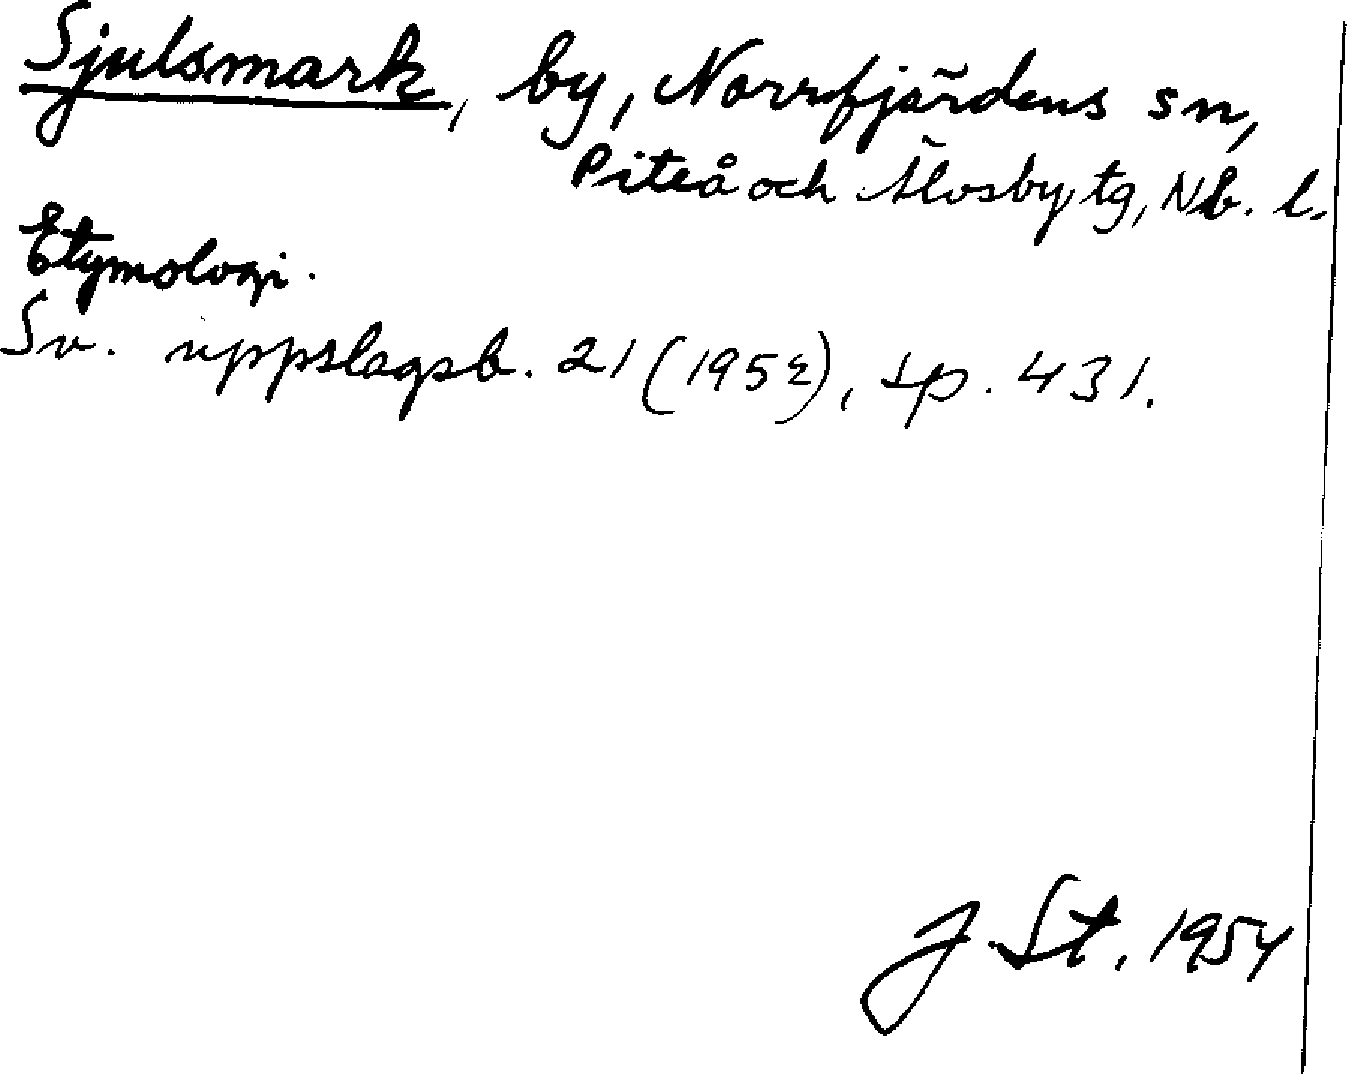 Sjulsmark, by, Norrfjärdens sn,
Piteå och Älvsby tg, Nb. l.
Etymologi.
Sv. uppslagsb. 21 (1952), sp. 431.
J. St. 1954